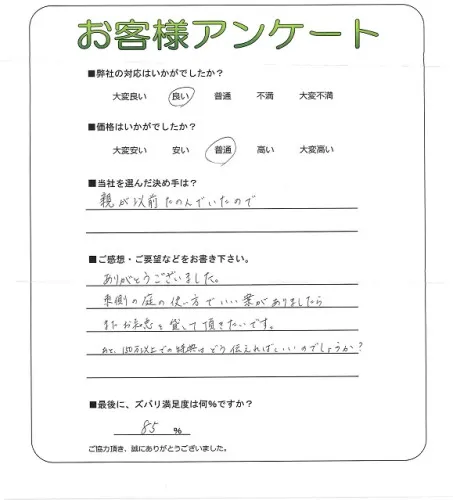 お客様アンケート
■弊社の対応はいかがでしたか？
大変良い 良い 普通 不満 大変不満
■価格はいかがでしたか？
大変安い 安い 普通 高い 大変高い
■当社を選んだ決め手は？
親が以前たのんでいたので
■ご感想・ご要望などをお書き下さい。
ありがとうございました。
東側の庭の使い方でいい案がありましたら
またお知恵を貸して頂きたいです。
あと、150万以上での特典はどう伝えればいいのでしょうか？
■最後に、ズバリ満足度は何％ですか？
85 ％
ご協力頂き、誠にありがとうございました。